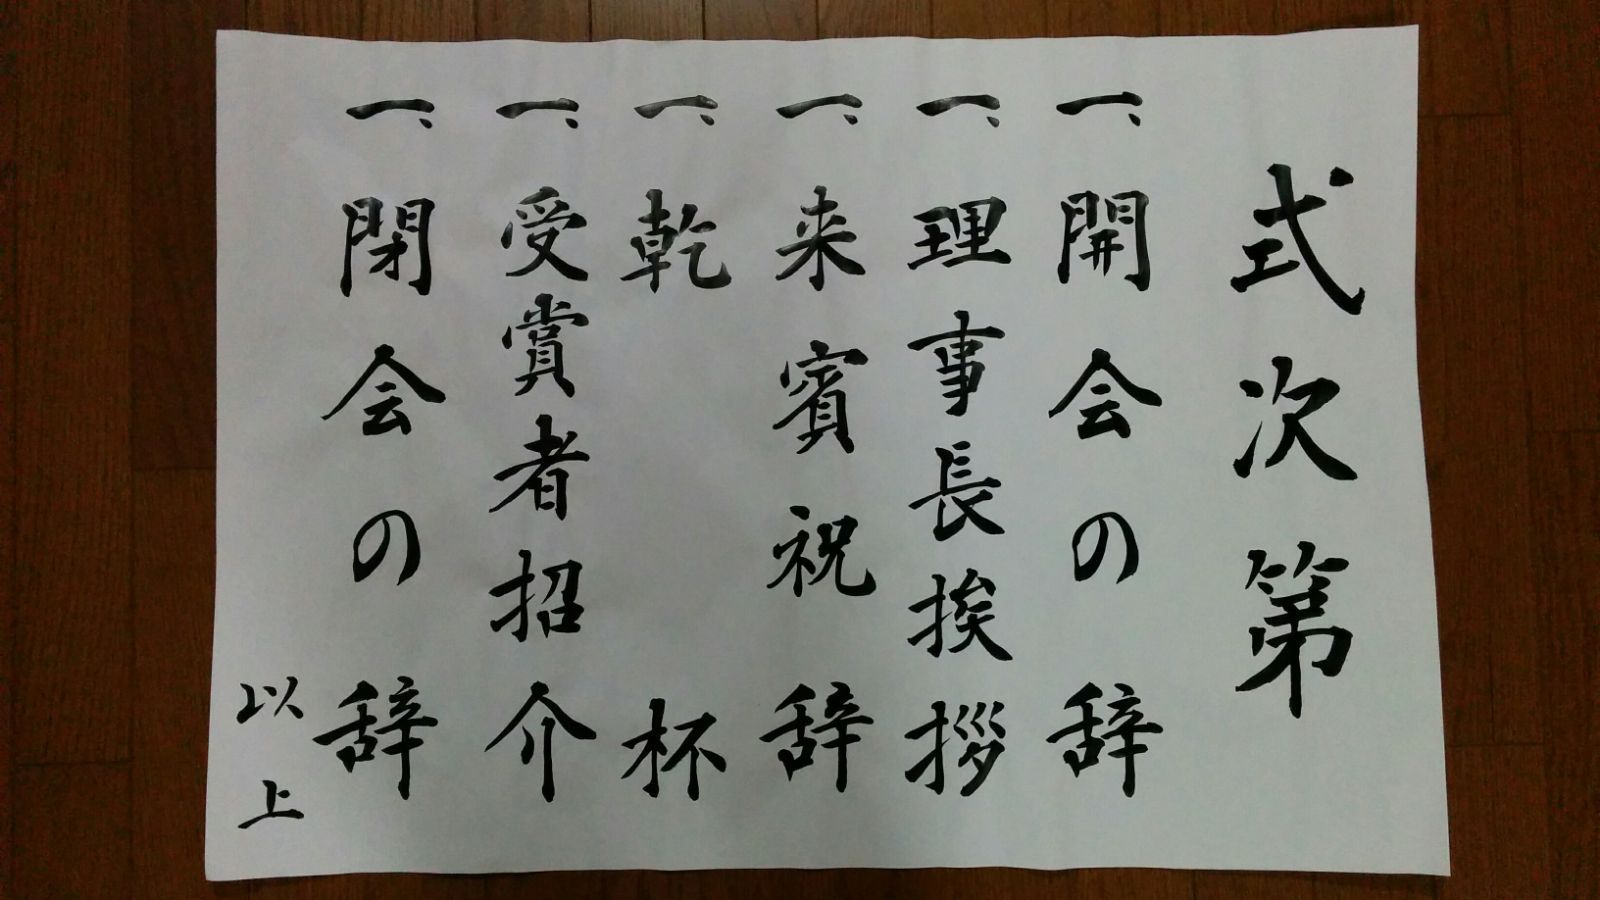 式次第
一、開会の辞
一、理事長挨拶
一、来賓祝辞
一、乾杯
一、受賞者招介
一、閉会の辞
以上